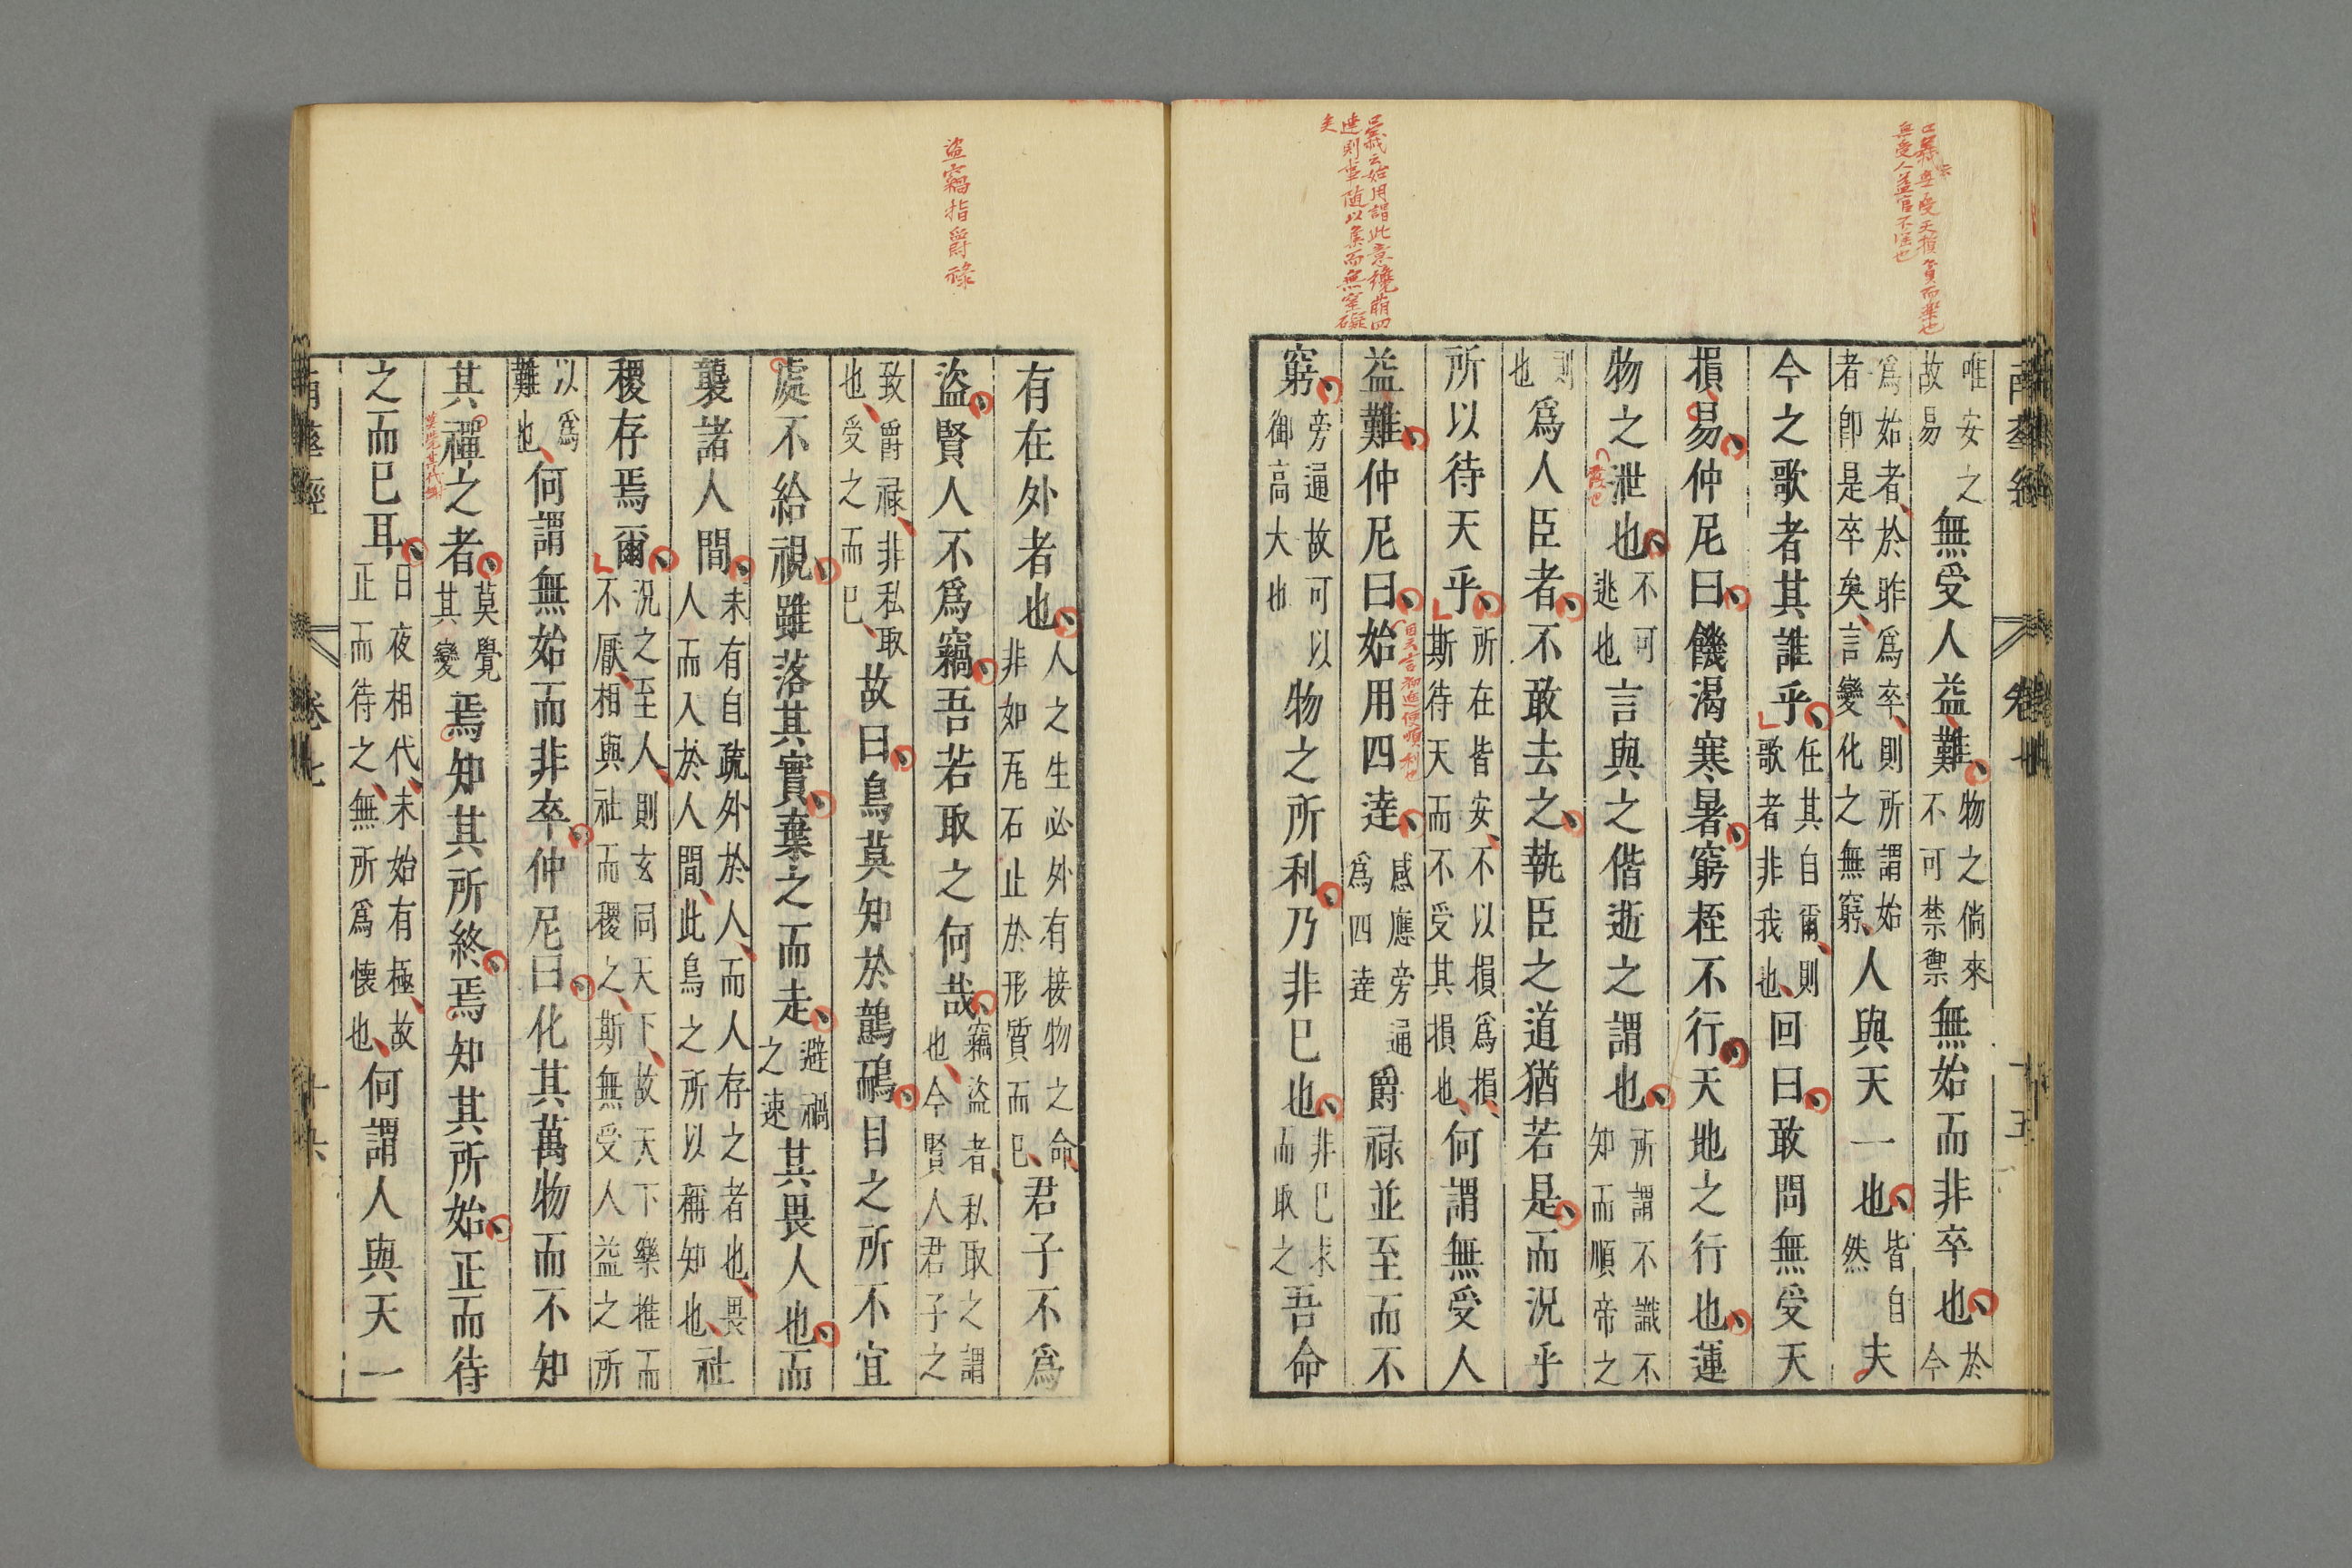 南華經
卷七
十五
唯安之故易無受人益難物之儻來不可禁禦無始而非卒也於今
爲始者於昨爲卒則所謂始者卽是卒矣言變化之無窮人與天一也皆自然夫
今之歌者其誰乎任其自爾則歌者非我也回曰敢問無受天
損易仲尼曰饑渴寒暑窮桎不行天地之行也運
物之泄也不可逃也言與之偕逝之謂也所謂不識不知而順帝之
則也爲人臣者不敢去之執臣之道猶若是而況乎
所以待天乎所在皆安不以損爲損斯待天而不受其損也何謂無受人
益難仲尼曰始用四達感應旁通爲四達爵祿並至而不
窮旁通故可以御高大也物之所利乃非己也非己求而取之吾命
有在外者也人之生必外有接物之命非如瓦石止於形質而已君子不爲
盜賢人不爲竊吾若取之何哉竊盜者私取之謂也今賢人君子之
致爵祿非私取也受之而已故曰鳥莫知於鷾鴯目之所不宜
處不給視雖落其實棄之而走避禍之速其畏人也而
襲諸人間未有自疏外於人而人存之者也畏人而入於人間此鳥之所以稱知也社
稷存焉爾況之至人則玄同天下故天下樂推而不厭相與社而稷之斯無受人益之所
以爲難也何謂無始而非卒仲尼曰化其萬物而不知
其禪之者莫覺其變焉知其所終焉知其所始正而待
之而已耳日夜相代未始有極故正而待之無所爲懷也何謂人與天一
南華經
卷七
十六
盜竊指爵祿